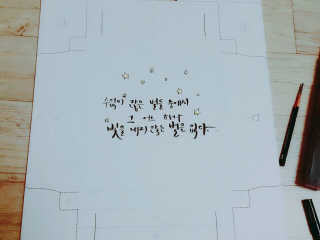 수없이 많은 별들 중에서
그 어느 하나
빛을 내지 않는 별은 없다.